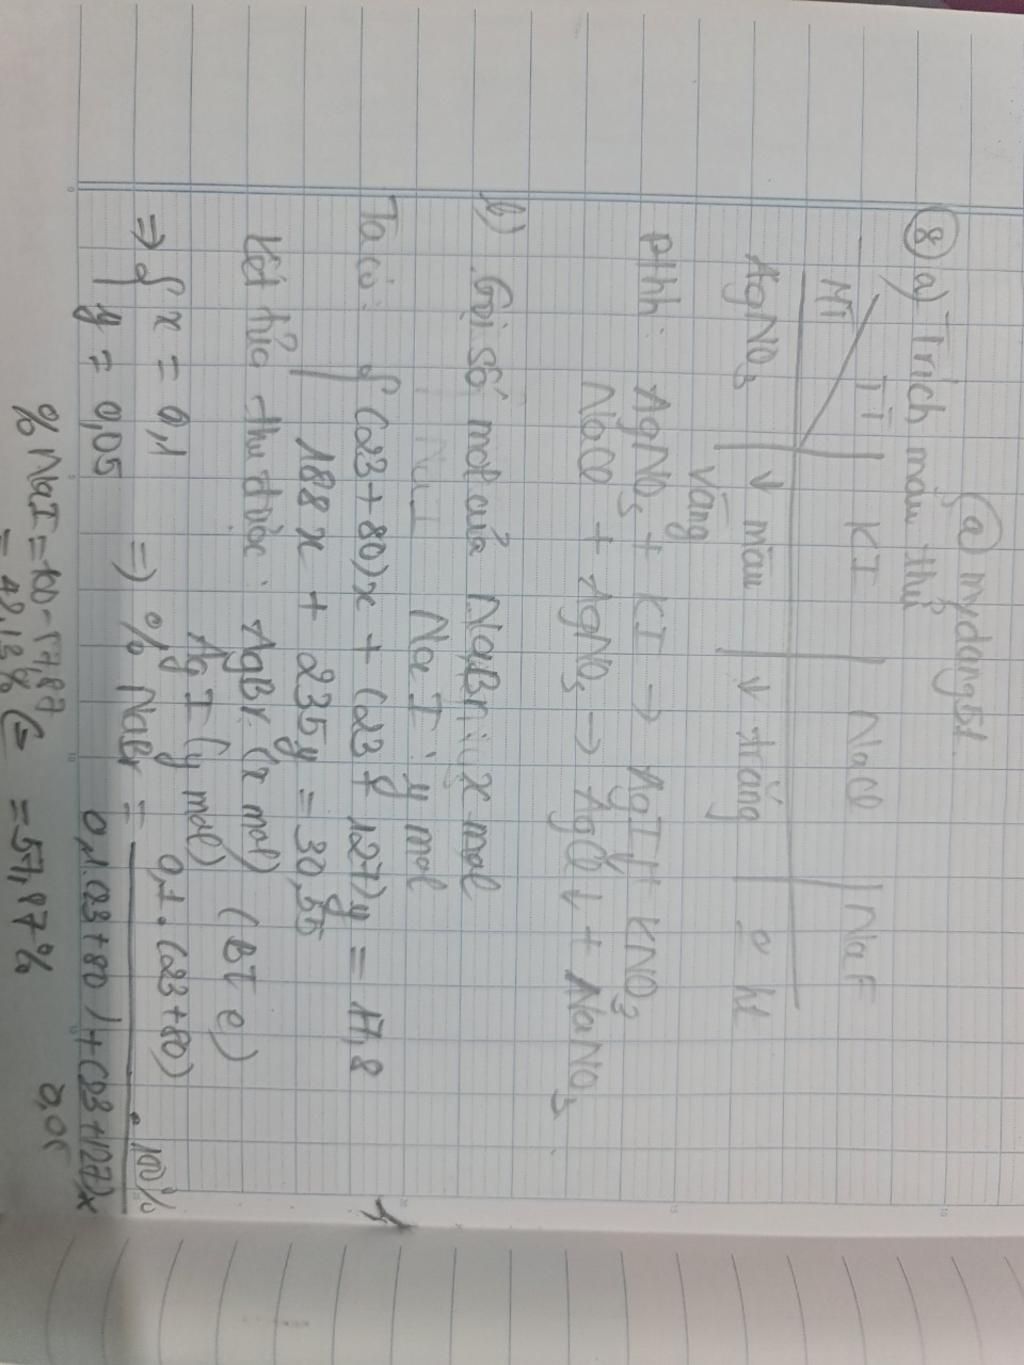 @mydang51
⑧ a) Trích mẫu thử
MT TT KI NaCl NaF
AgNO₃ ↓ màu vàng ↓ trắng o ht
Pthh: AgNO₃ + KI → AgI↓ + KNO₃
NaCl + AgNO₃ → AgCl↓ + NaNO₃
b) Gọi số mol của NaBr: x mol
NaI: y mol
Ta có: { (23+80)x + (23+127)y = 17,8
188x + 235y = 30,55
Kết tủa thu được: AgBr (x mol) (BT e)
AgI (y mol)
=> { x = 0,1
y = 0,05
=> % NaBr = 0,1.(23+80) / 0,1.(23+80)+(23+127)x 0,05 . 100%
= 57,87%
% NaI = 100 - 57,87
= 42,13%